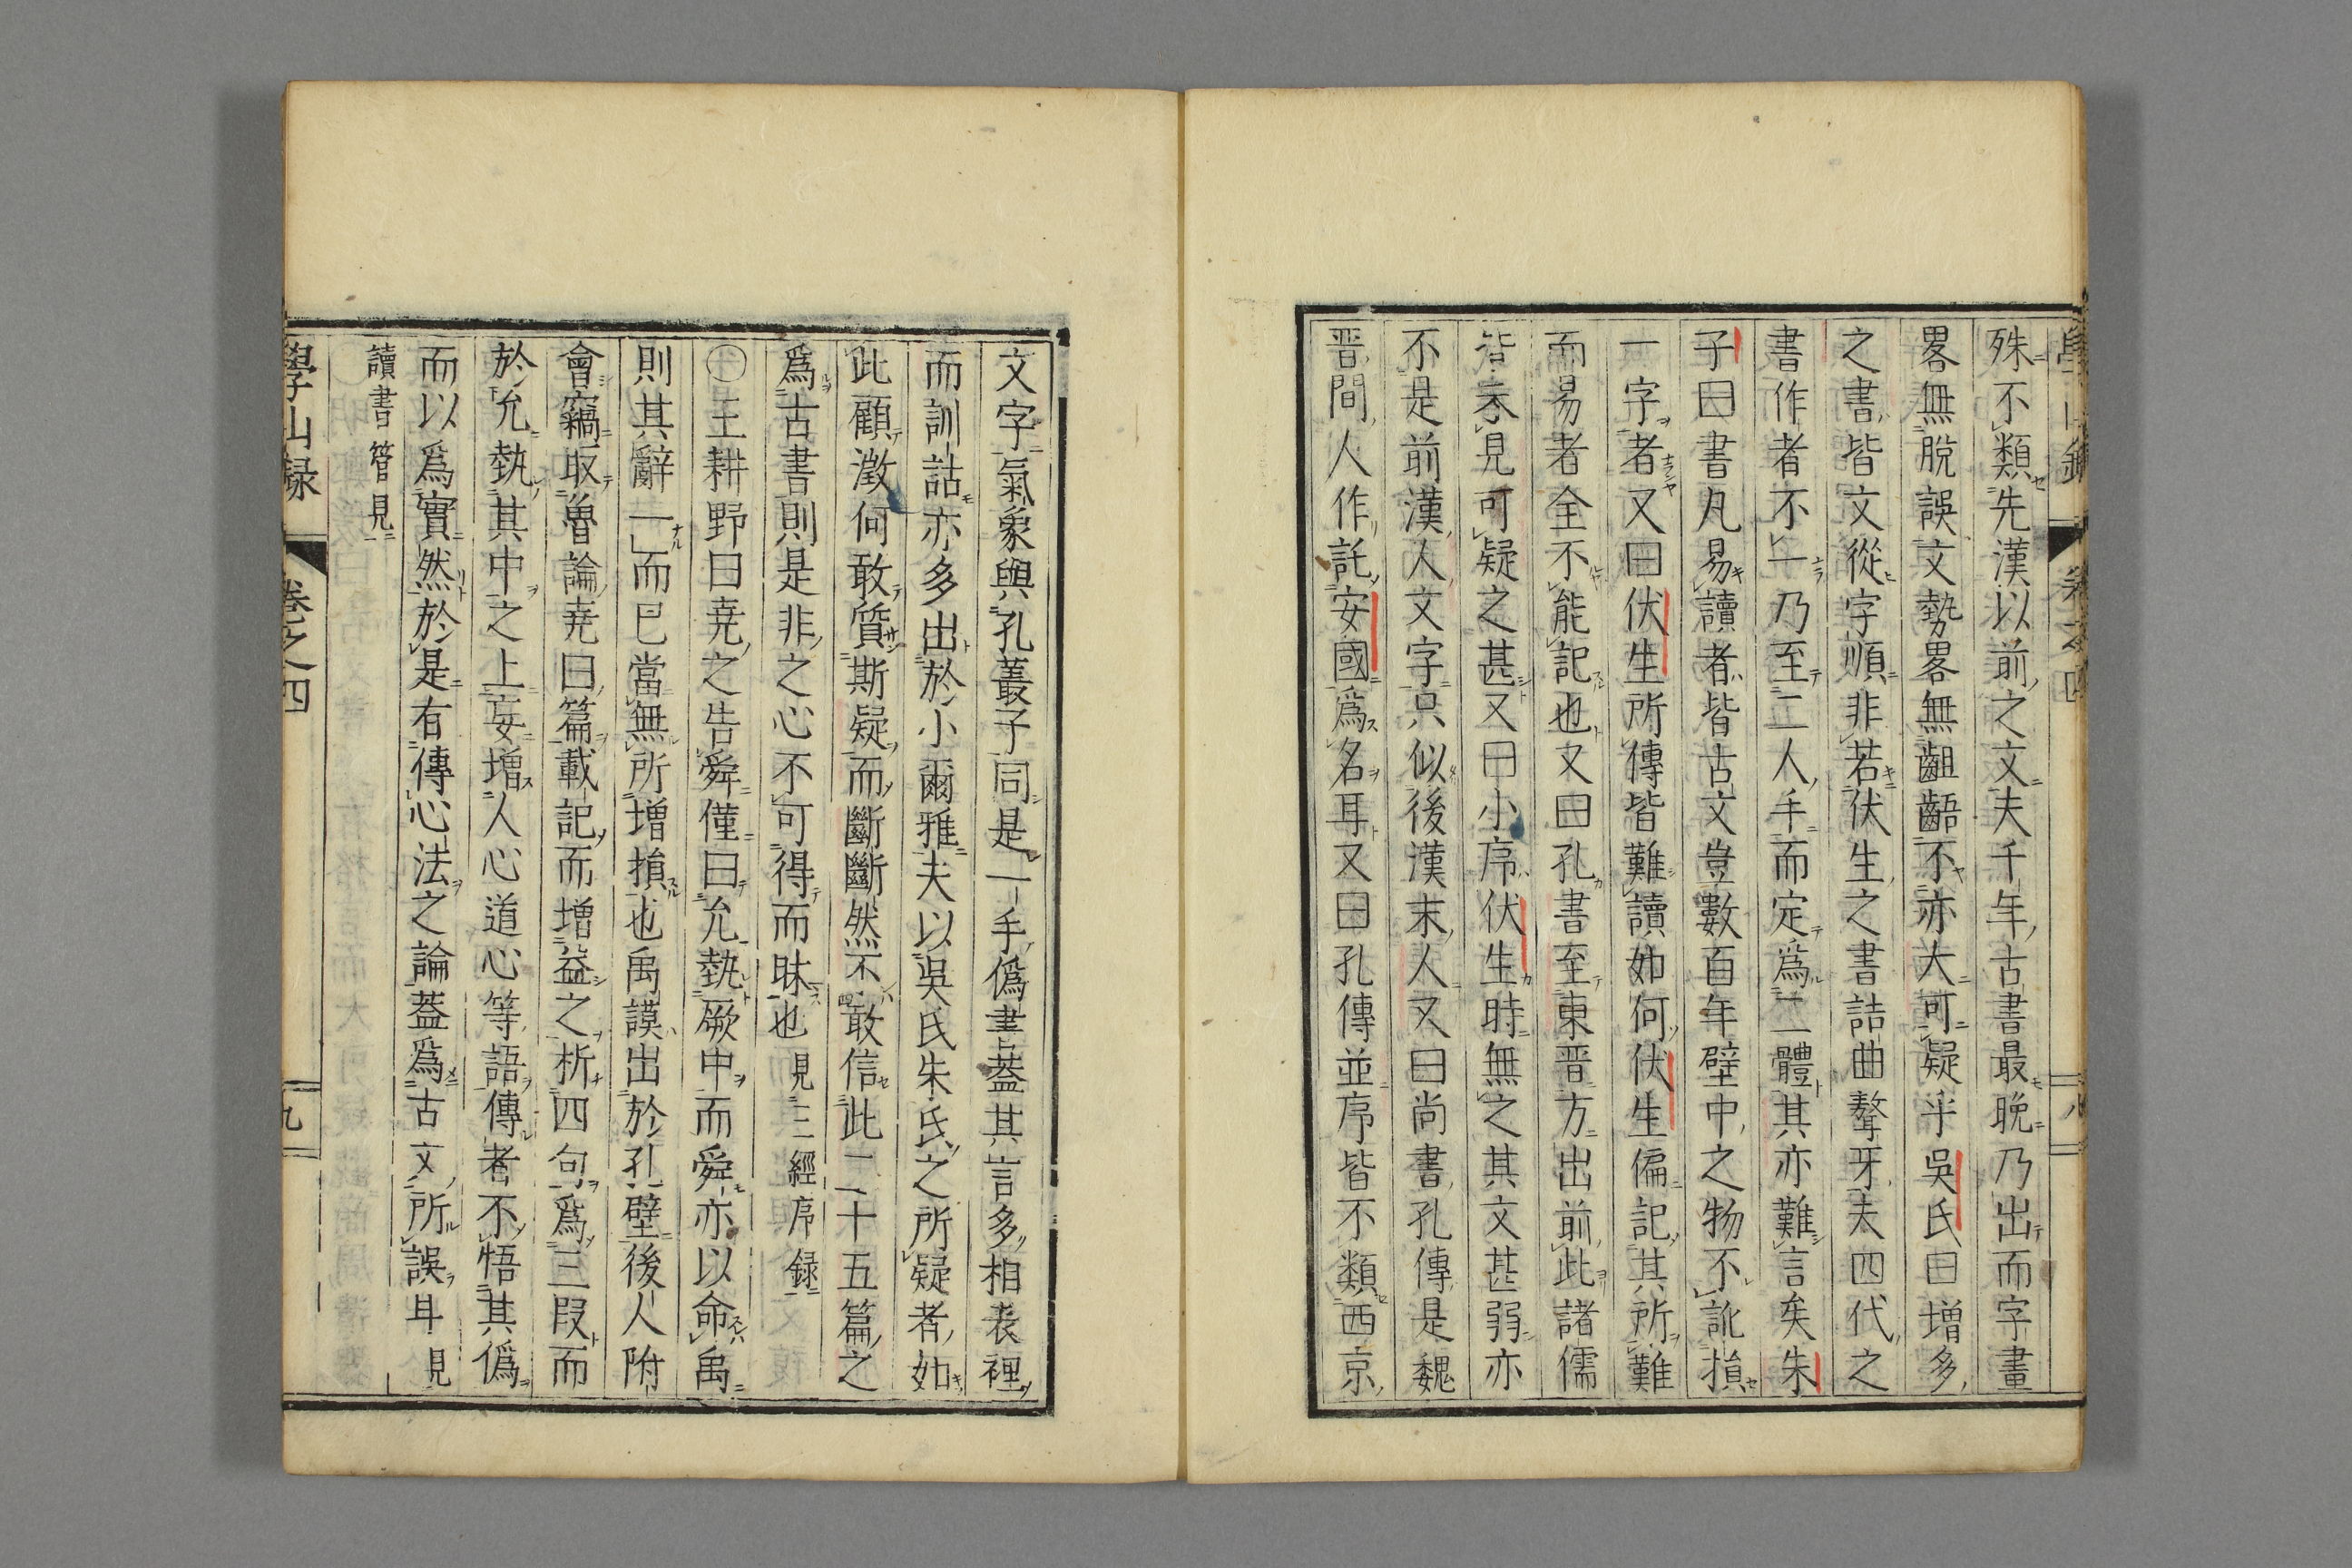 殊不類先漢以前之文夫千年古書最晚乃出而字畫
畧無脫誤文勢畧無齟齬不亦大可疑乎吳氏曰增多
之書皆文從字順非若伏生之書詰曲聱牙夫四代之
書作者不一乃至二人手而定爲二體其亦難言矣朱
子曰書凡易讀者皆古文豈數百年壁中之物不訛損
一字者又曰伏生所傳皆難讀如何伏生偏記其所難
而易者全不能記也又曰孔書至東晉方出前此諸儒
皆不見可疑之甚又曰小序伏生時無之其文甚弱亦
不是前漢人文字只似後漢末人又曰尚書孔傳是魏
晉間人作託安國爲名耳又曰孔傳並序皆不類西京
文字氣象與孔叢子同是一手僞書蓋其言多相表裡
而訓詁亦多出於小爾雅夫以吳氏朱氏之所疑者如
此顧澂何敢質斯疑而斷斷然不敢信此二十五篇之
爲古書則是非之心不可得而昧也見三經序録
〇王耕野曰堯之告舜僅曰允執厥中而舜亦以命禹
則其辭一而已當無所增損也禹謨出於孔壁後人附
會竊取魯論堯曰篇載記而增益之析四句爲三段而
於允執其中之上妄增人心道心等語傳者不悟其僞
而以爲實然於是有傳心法之論蓋爲古文所誤耳見
讀書管見
學山録
卷之四
九